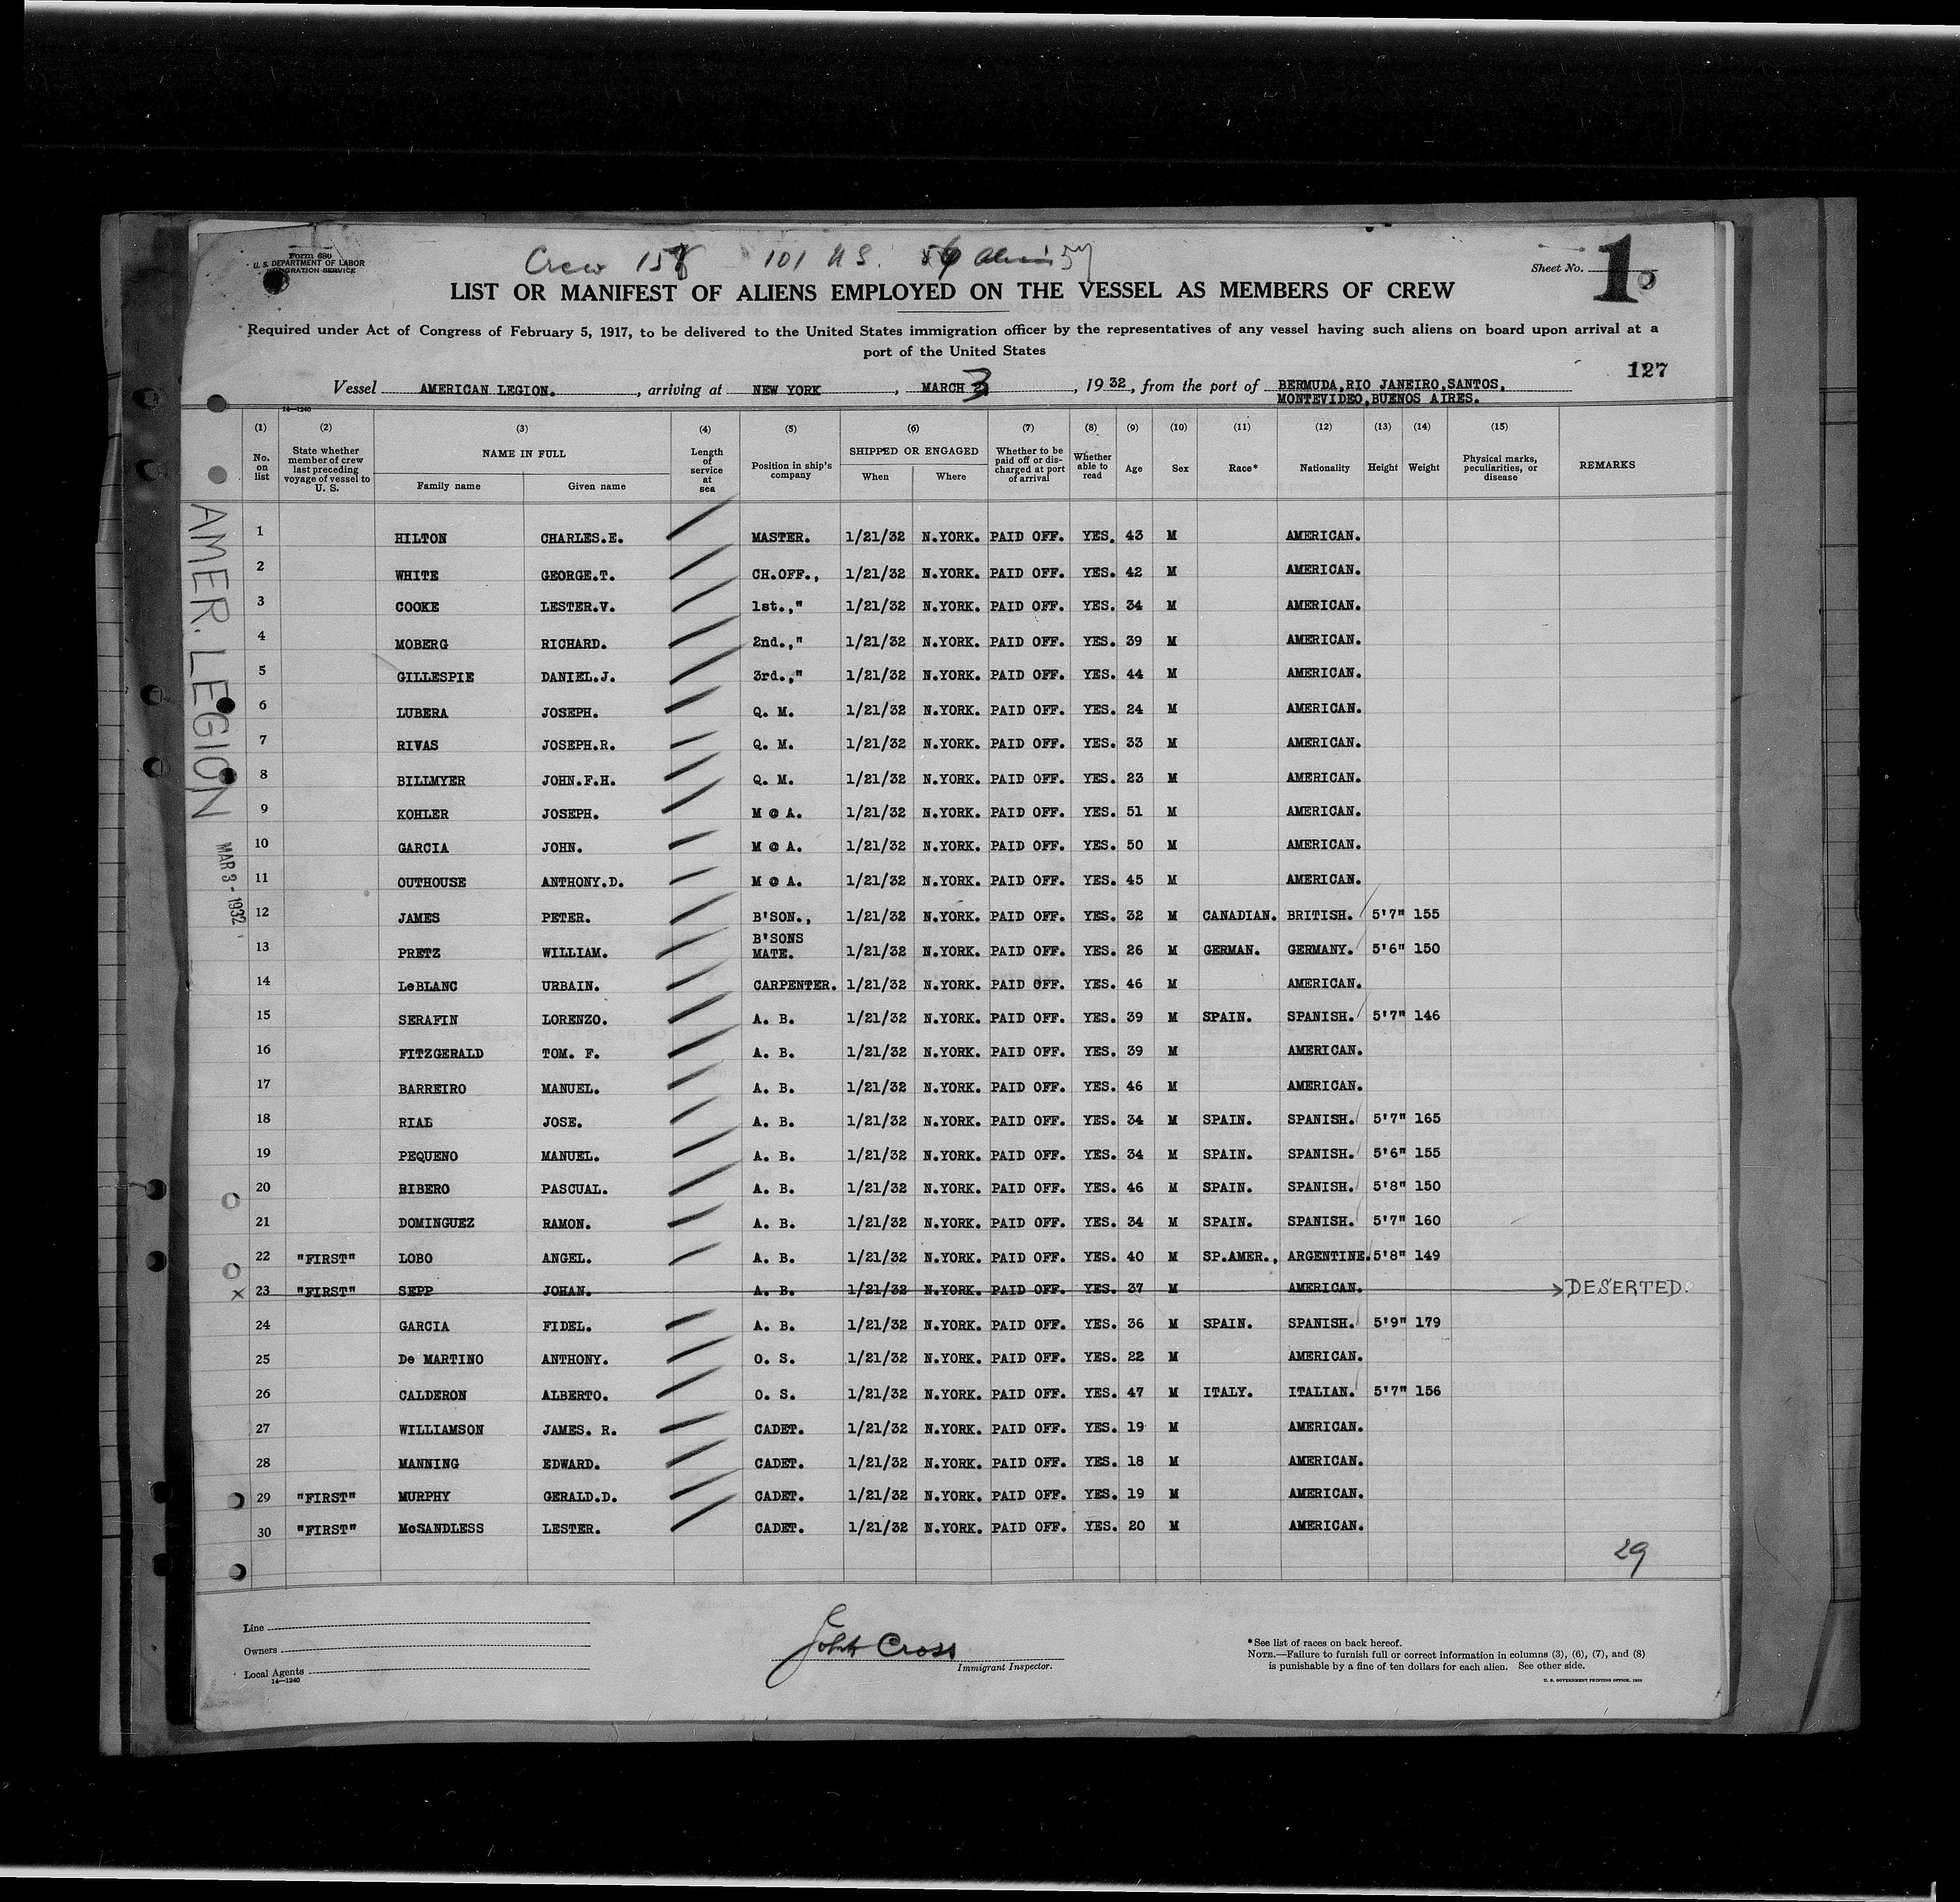 Form 680
U. S. DEPARTMENT OF LABOR
IMMIGRATION SERVICE
Crew 158 101 U.S. 57
Sheet No. 1
LIST OR MANIFEST OF ALIENS EMPLOYED ON THE VESSEL AS MEMBERS OF CREW
Required under Act of Congress of February 5, 1917, to be delivered to the United States immigration officer by the representatives of any vessel having such aliens on board upon arrival at a
port of the United States
127
Vessel AMERICAN LEGION. , arriving at NEW YORK , MARCH 3 , 19 32, from the port of BERMUDA,RIO JANEIRO,SANTOS,
MONTEVIDEO,BUENOS AIRES.
14—1240
(1) No. on list (2) State whether member of crew last preceding voyage of vessel to U. S. (3) NAME IN FULL Family name Given name (4) Length of service at sea (5) Position in ship's company (6) SHIPPED OR ENGAGED When Where (7) Whether to be paid off or discharged at port of arrival (8) Whether able to read (9) Age (10) Sex (11) Race* (12) Nationality (13) Height (14) Weight (15) Physical marks, peculiarities, or disease REMARKS
AMER. LEGION
MAR 3 - 1932
1 HILTON CHARLES.E. MASTER. 1/21/32 N.YORK. PAID OFF. YES. 43 M AMERICAN.
2 WHITE GEORGE.T. CH.OFF., 1/21/32 N.YORK. PAID OFF. YES. 42 M AMERICAN.
3 COOKE LESTER.V. 1st.," 1/21/32 N.YORK. PAID OFF. YES. 34 M AMERICAN.
4 MOBERG RICHARD. 2nd.," 1/21/32 N.YORK. PAID OFF. YES. 39 M AMERICAN.
5 GILLESPIE DANIEL.J. 3rd.," 1/21/32 N.YORK. PAID OFF. YES. 44 M AMERICAN.
6 LUBERA JOSEPH. Q. M. 1/21/32 N.YORK. PAID OFF. YES. 24 M AMERICAN.
7 RIVAS JOSEPH.R. Q. M. 1/21/32 N.YORK. PAID OFF. YES. 33 M AMERICAN.
8 BILLMYER JOHN.F.H. Q. M. 1/21/32 N.YORK. PAID OFF. YES. 23 M AMERICAN.
9 KOHLER JOSEPH. M @ A. 1/21/32 N.YORK. PAID OFF. YES. 51 M AMERICAN.
10 GARCIA JOHN. M @ A. 1/21/32 N.YORK. PAID OFF. YES. 50 M AMERICAN.
11 OUTHOUSE ANTHONY.D. M @ A. 1/21/32 N.YORK. PAID OFF. YES. 45 M AMERICAN.
12 JAMES PETER. B'SON., 1/21/32 N.YORK. PAID OFF. YES. 32 M CANADIAN. BRITISH. 5'7" 155
13 PRETZ WILLIAM. B'SONS MATE. 1/21/32 N.YORK. PAID OFF. YES. 26 M GERMAN. GERMANY. 5'6" 150
14 LeBLANC URBAIN. CARPENTER. 1/21/32 N.YORK. PAID OFF. YES. 46 M AMERICAN.
15 SERAFIN LORENZO. A. B. 1/21/32 N.YORK. PAID OFF. YES. 39 M SPAIN. SPANISH. 5'7" 146
16 FITZGERALD TOM. F. A. B. 1/21/32 N.YORK. PAID OFF. YES. 39 M AMERICAN.
17 BARREIRO MANUEL. A. B. 1/21/32 N.YORK. PAID OFF. YES. 46 M AMERICAN.
18 RIAL JOSE. A. B. 1/21/32 N.YORK. PAID OFF. YES. 34 M SPAIN. SPANISH. 5'7" 165
19 PEQUENO MANUEL. A. B. 1/21/32 N.YORK. PAID OFF. YES. 34 M SPAIN. SPANISH. 5'6" 155
20 RIBERO PASCUAL. A. B. 1/21/32 N.YORK. PAID OFF. YES. 46 M SPAIN. SPANISH. 5'8" 150
21 DOMINGUEZ RAMON. A. B. 1/21/32 N.YORK. PAID OFF. YES. 34 M SPAIN. SPANISH. 5'7" 160
22 "FIRST" LOBO ANGEL. A. B. 1/21/32 N.YORK. PAID OFF. YES. 40 M SP.AMER., ARGENTINE. 5'8" 149
x 23 "FIRST" SEPP JOHAN. A. B. 1/21/32 N.YORK. PAID OFF. YES. 37 M AMERICAN. DESERTED.
24 GARCIA FIDEL. A. B. 1/21/32 N.YORK. PAID OFF. YES. 36 M SPAIN. SPANISH. 5'9" 179
25 De MARTINO ANTHONY. O. S. 1/21/32 N.YORK. PAID OFF. YES. 22 M AMERICAN.
26 CALDERON ALBERTO. O. S. 1/21/32 N.YORK. PAID OFF. YES. 47 M ITALY. ITALIAN. 5'7" 156
27 WILLIAMSON JAMES. R. CADET. 1/21/32 N.YORK. PAID OFF. YES. 19 M AMERICAN.
28 MANNING EDWARD. CADET. 1/21/32 N.YORK. PAID OFF. YES. 18 M AMERICAN.
29 "FIRST" MURPHY GERALD.D. CADET. 1/21/32 N.YORK. PAID OFF. YES. 19 M AMERICAN.
30 "FIRST" McSANDLESS LESTER. CADET. 1/21/32 N.YORK. PAID OFF. YES. 20 M AMERICAN.
29
Line
Owners
Local Agents
14—1240
John Cross
Immigrant Inspector.
*See list of races on back hereof.
NOTE.—Failure to furnish full or correct information in columns (3), (6), (7), and (8)
is punishable by a fine of ten dollars for each alien. See other side.